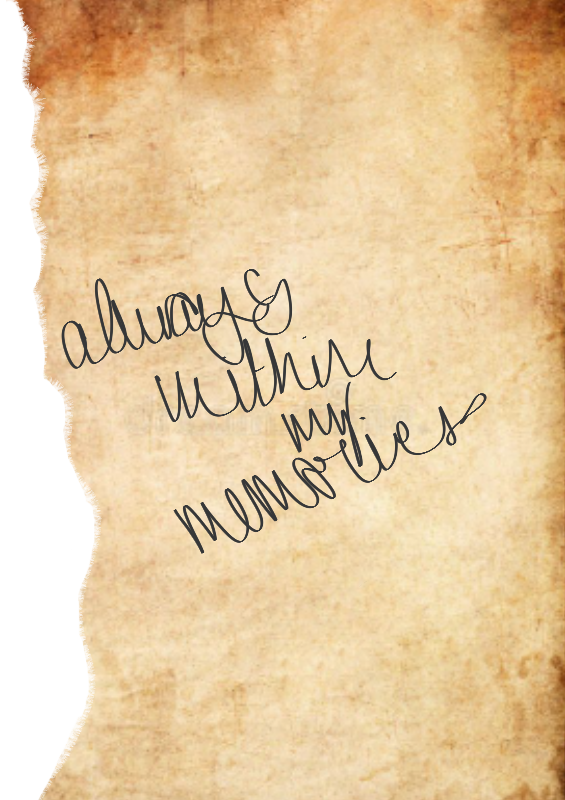 always
within
my
memories